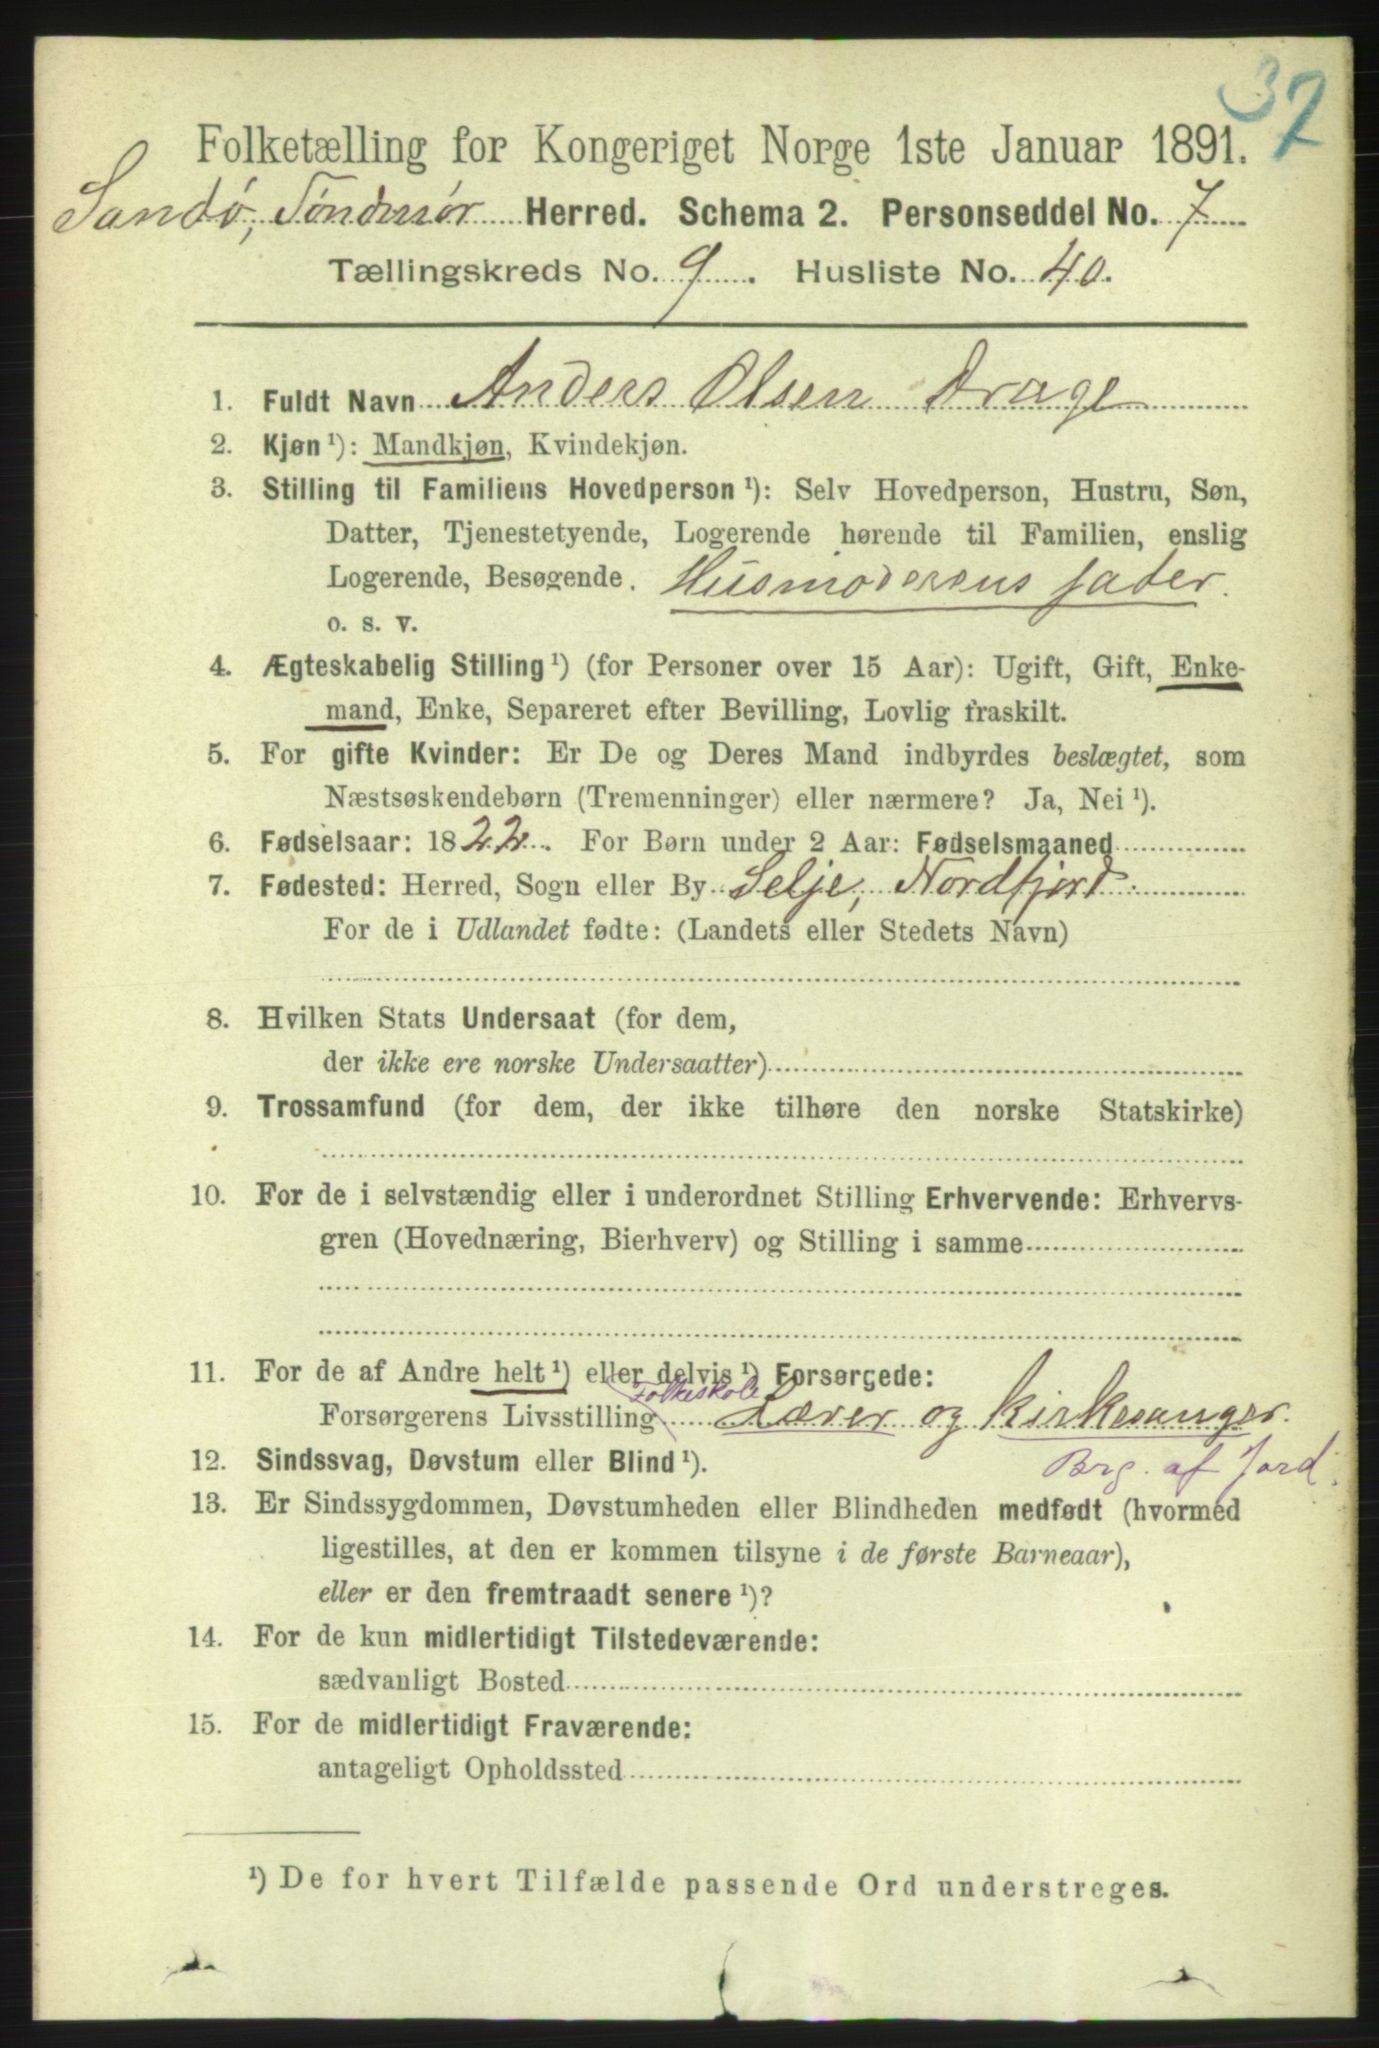 37
Folketælling for Kongeriget Norge 1ste Januar 1891.
Sandø, Söndmör Herred. Schema 2. Personseddel No. 7
Tællingskreds No. 9. Husliste No. 40.
1. Fuldt Navn Anders Olsen Drage
2. Kjøn ¹): Mandkjøn, Kvindekjøn.
3. Stilling til Familiens Hovedperson ¹): Selv Hovedperson, Hustru, Søn,
Datter, Tjenestetyende, Logerende hørende til Familien, enslig
Logerende, Besøgende. Husmoderens fader.
o. s. v.
4. Ægteskabelig Stilling ¹) (for Personer over 15 Aar): Ugift, Gift, Enke-
mand, Enke, Separeret efter Bevilling, Lovlig fraskilt.
5. For gifte Kvinder: Er De og Deres Mand indbyrdes beslægtet, som
Næstsøskendebørn (Tremenninger) eller nærmere? Ja, Nei ¹).
6. Fødselsaar: 1822. For Børn under 2 Aar: Fødselsmaaned
7. Fødested: Herred, Sogn eller By Selje, Nordfjord.
For de i Udlandet fødte: (Landets eller Stedets Navn)
8. Hvilken Stats Undersaat (for dem,
der ikke ere norske Undersaatter)
9. Trossamfund (for dem, der ikke tilhøre den norske Statskirke)
10. For de i selvstændig eller i underordnet Stilling Erhvervende: Erhvervs-
gren (Hovednæring, Bierhverv) og Stilling i samme
11. For de af Andre helt ¹) eller delvis ¹) Forsørgede:
Forsørgerens Livsstilling Folkeskole Lærer og kirkesanger.
Brg. af Jord.
12. Sindssvag, Døvstum eller Blind ¹).
13. Er Sindssygdommen, Døvstumheden eller Blindheden medfødt (hvormed
ligestilles, at den er kommen tilsyne i de første Barneaar),
eller er den fremtraadt senere ¹)?
14. For de kun midlertidigt Tilstedeværende:
sædvanligt Bosted
15. For de midlertidigt Fraværende:
antageligt Opholdssted
¹) De for hvert Tilfælde passende Ord understreges.